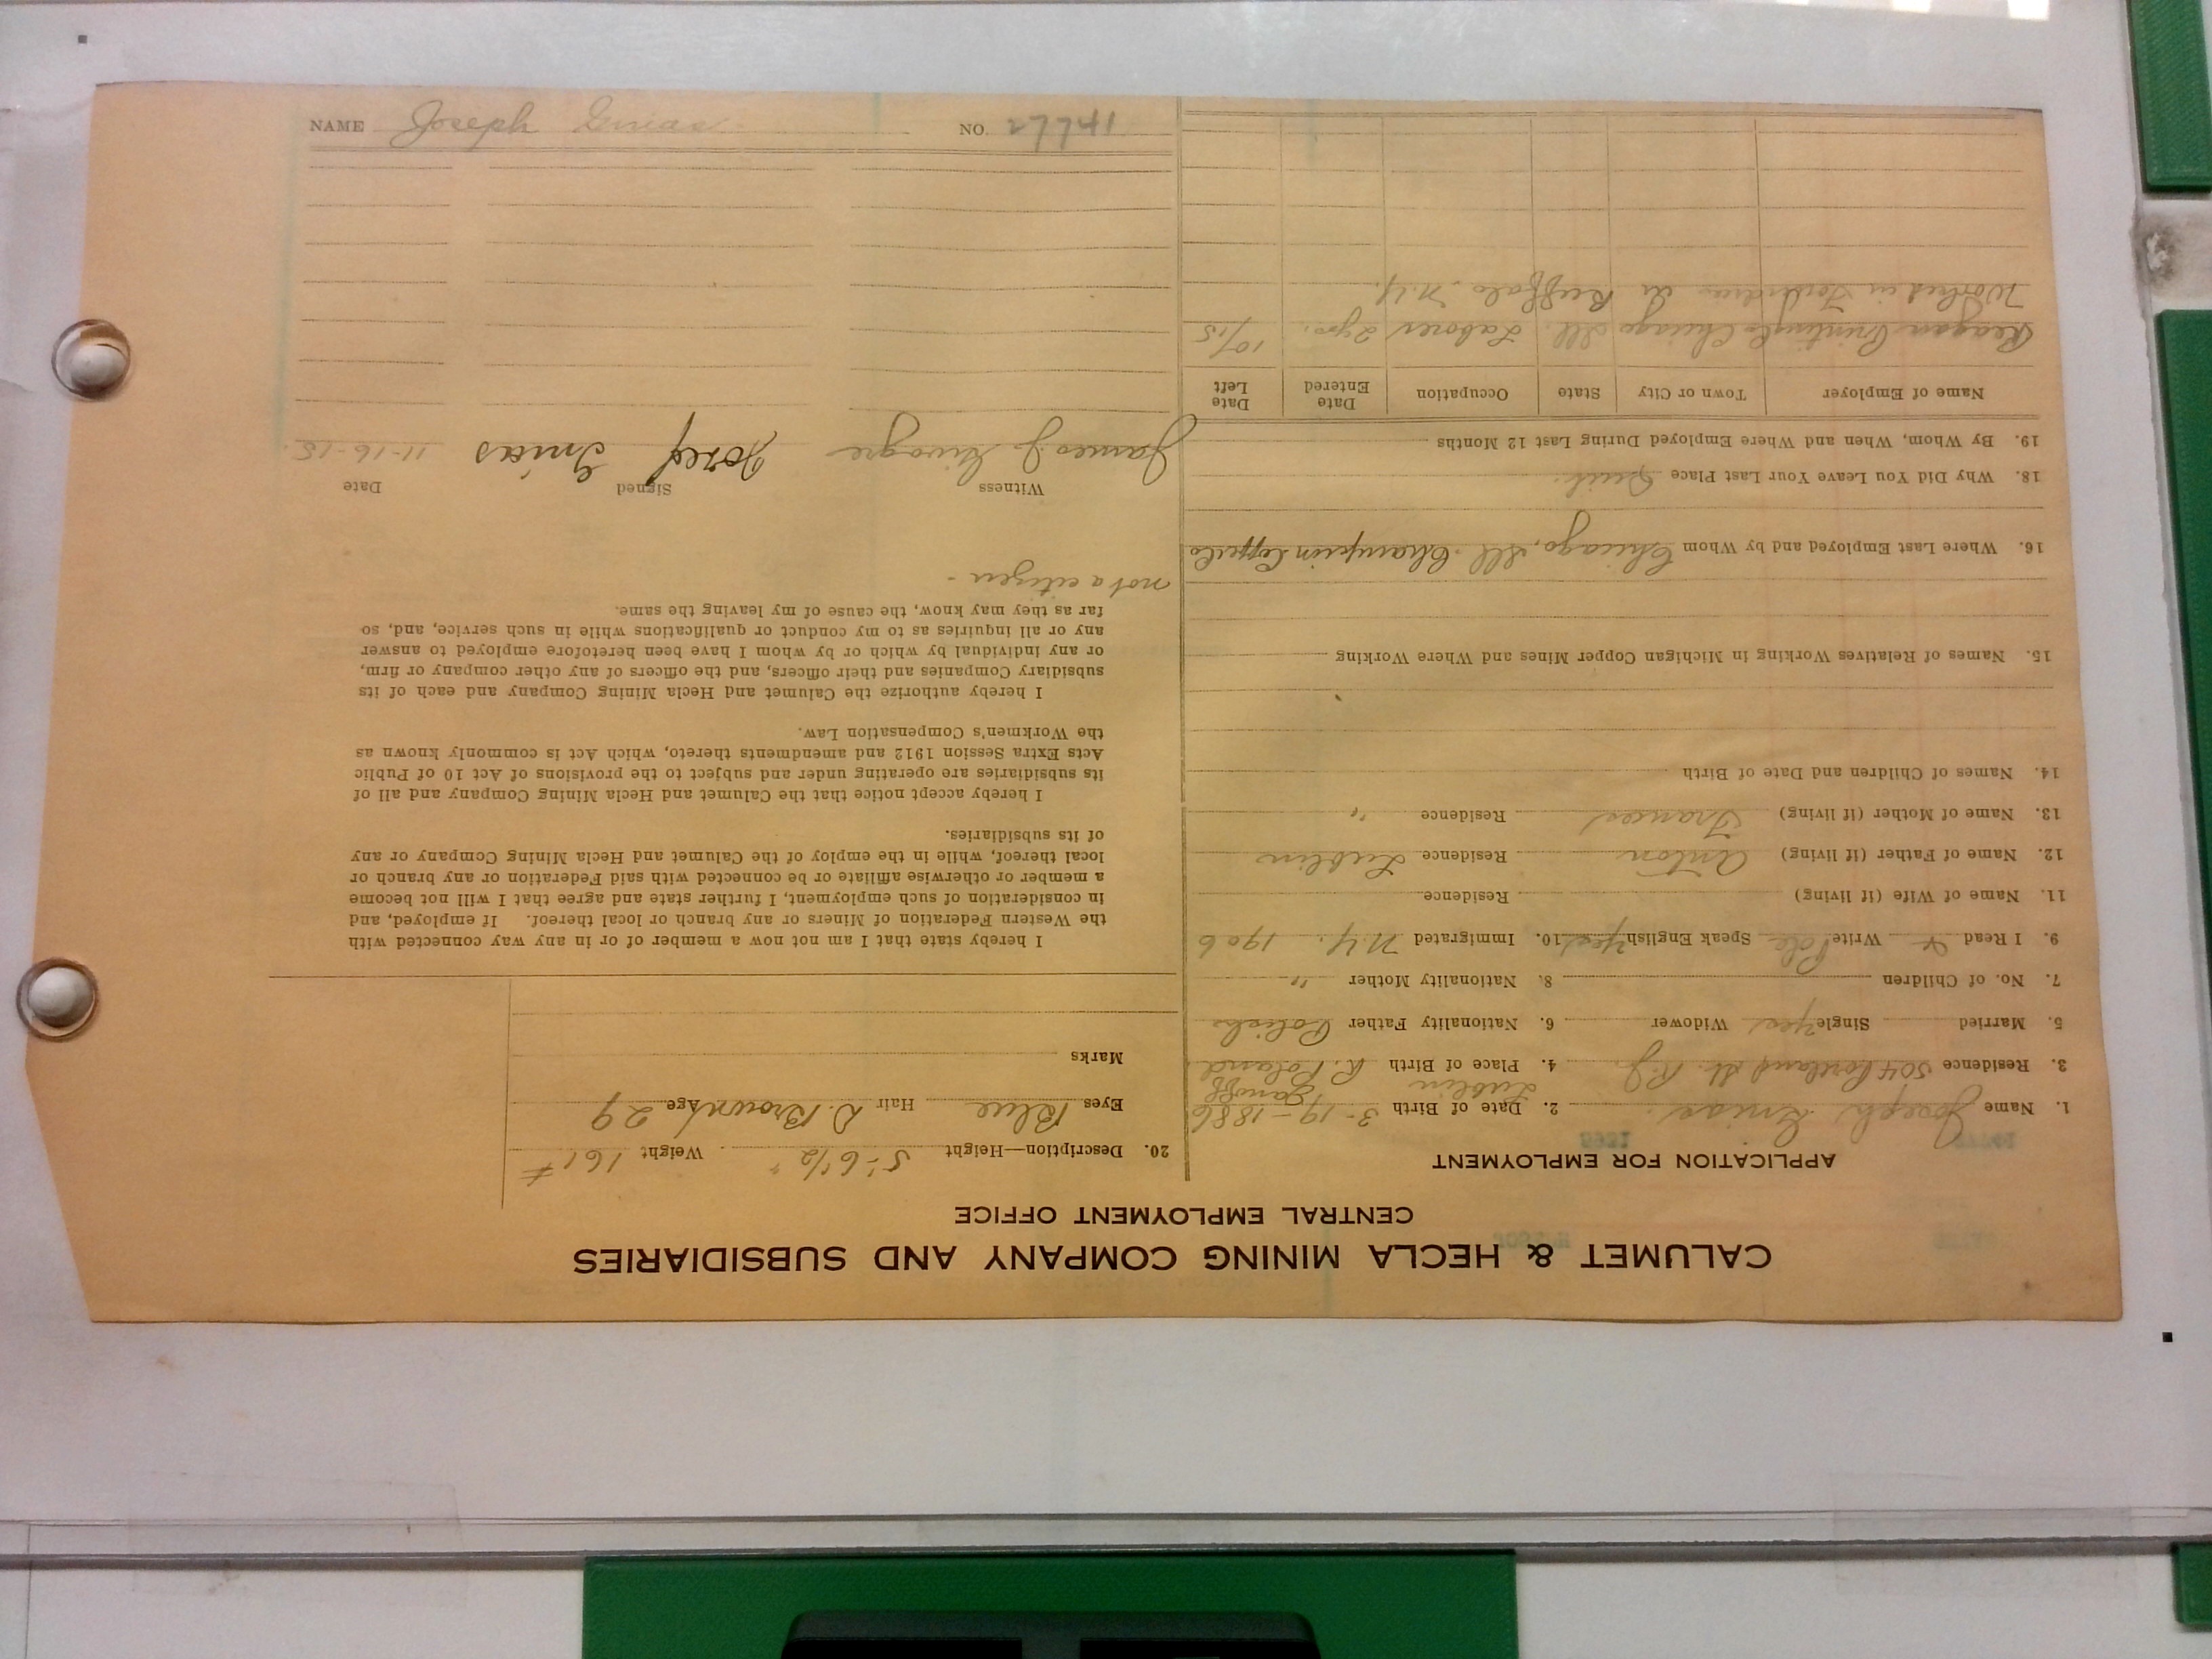 CALUMET & HECLA MINING COMPANY AND SUBSIDIARIES
CENTRAL EMPLOYMENT OFFICE
APPLICATION FOR EMPLOYMENT
1. Name Joseph 2. Date of Birth 3-19-1886
Lublin
3. Residence 504 St. 4. Place of Birth R. Poland
5. Married Single Yes Widower 6. Nationality Father Polish
7. No. of Children 8. Nationality Mother "
9. I Read & Write Pole Speak English Yes 10. Immigrated N.Y. 1906
11. Name of Wife (if living) Residence
12. Name of Father (if living) Anton Residence Lublin
13. Name of Mother (if living) Frances Residence "
14. Names of Children and Date of Birth
15. Names of Relatives Working in Michigan Copper Mines and Where Working
16. Where Last Employed and by Whom Chicago, Ill. Champion Copper Co
18. Why Did You Leave Your Last Place Quit.
19. By Whom, When and Where Employed During Last 12 Months
Name of Employer Town or City State Occupation Date Entered Date Left
Reagan Chicago Ill. Laborer 2 yrs. 10/15
Worked in in Buffalo N.Y.
20. Description—Height 5'-6½" Weight 161#
Eyes Blue Hair D. Brown Age 29
Marks
I hereby state that I am not now a member of or in any way connected with
the Western Federation of Miners or any branch or local thereof. If employed, and
in consideration of such employment, I further state and agree that I will not become
a member or otherwise affiliate or be connected with said Federation or any branch or
local thereof, while in the employ of the Calumet and Hecla Mining Company or any
of its subsidiaries.
I hereby accept notice that the Calumet and Hecla Mining Company and all of
its subsidiaries are operating under and subject to the provisions of Act 10 of Public
Acts Extra Session 1912 and amendments thereto, which Act is commonly known as
the Workmen's Compensation Law.
I hereby authorize the Calumet and Hecla Mining Company and each of its
subsidiary Companies and their officers, and the officers of any other company or firm,
or any individual by which or by whom I have been heretofore employed to answer
any or all inquiries as to my conduct or qualifications while in such service, and, so
far as they may know, the cause of my leaving the same.
not a citizen -
Witness Signed Date
James J. Jozef 11-16-15.
NAME Joseph NO. 27741